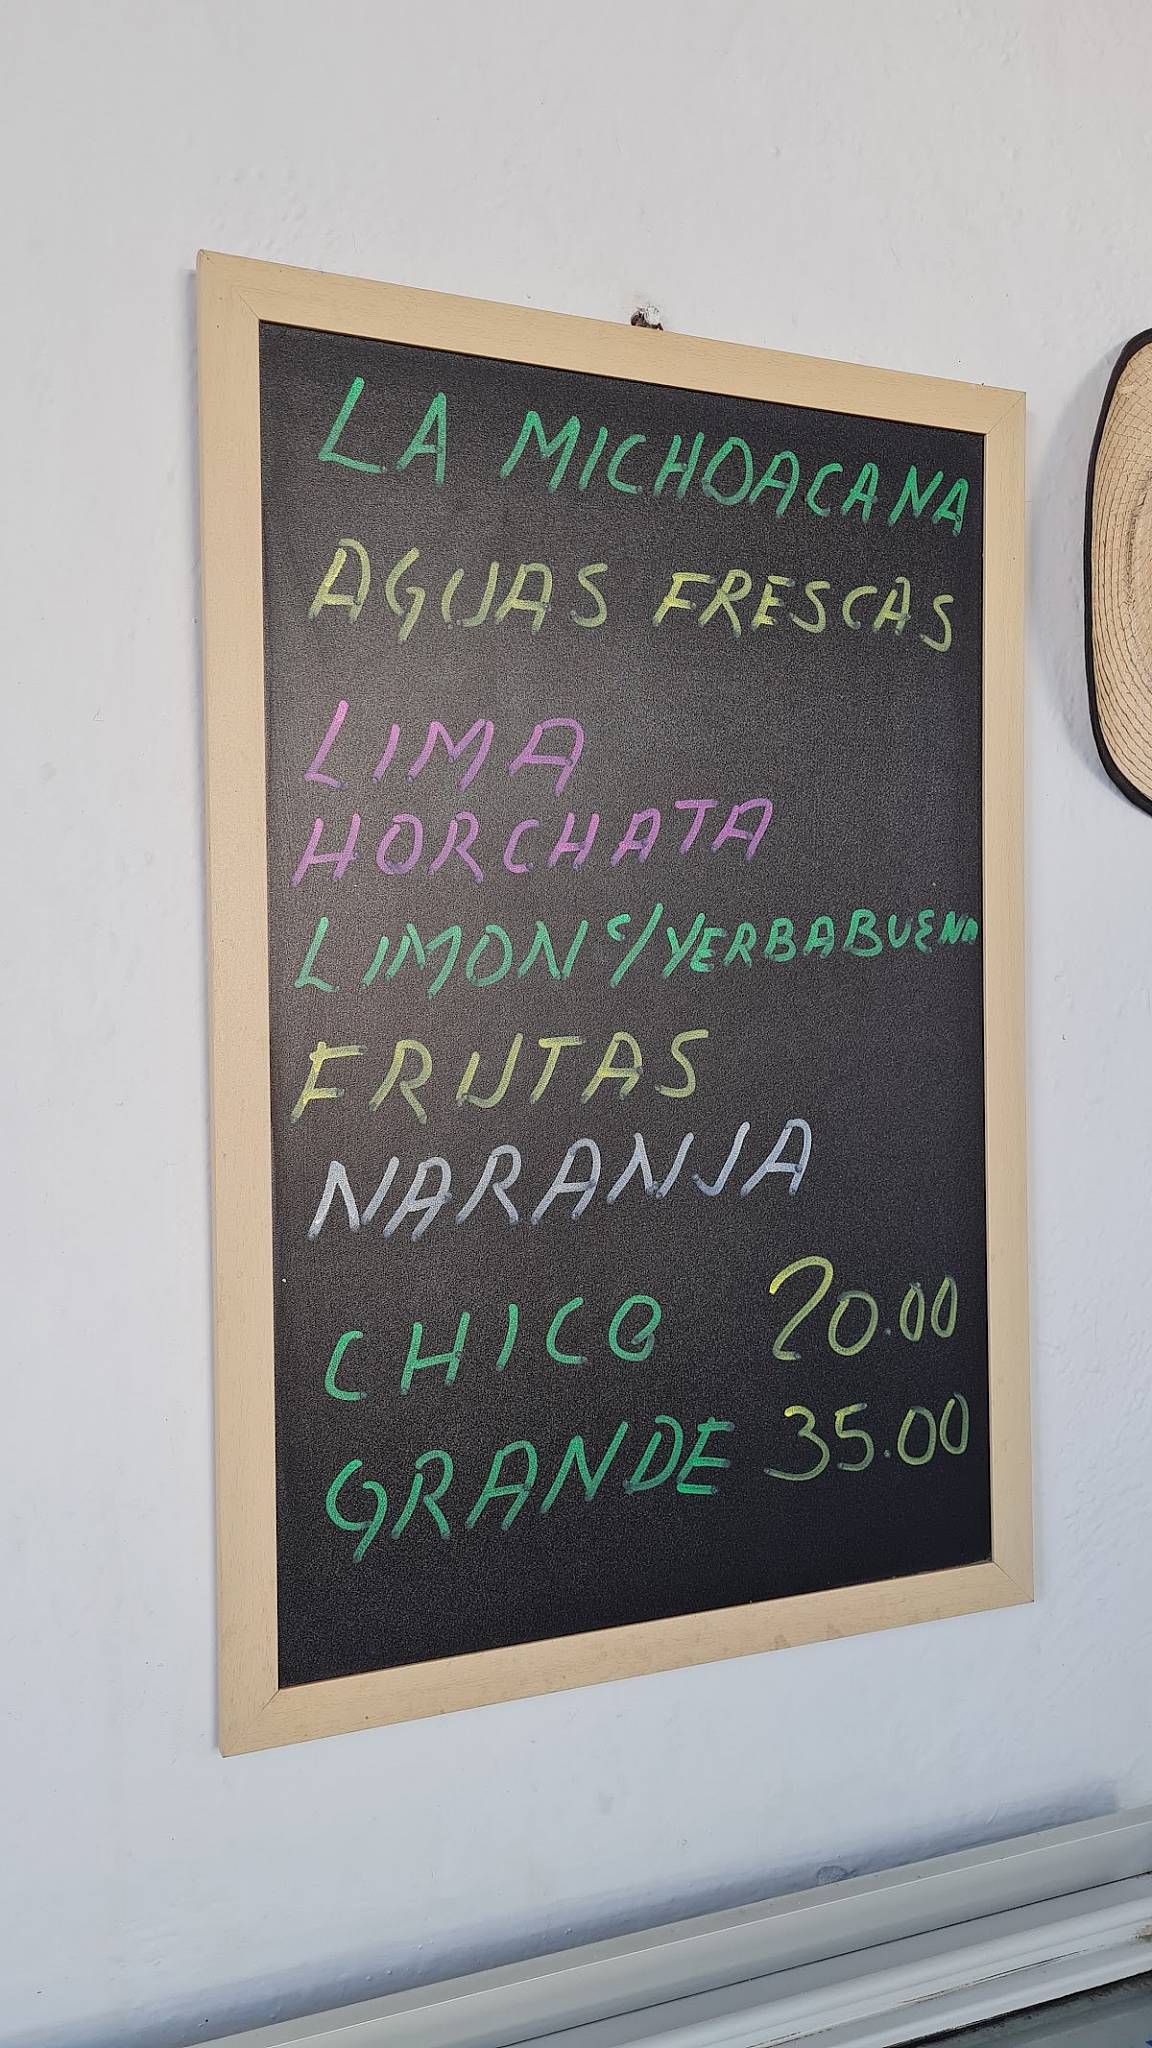 LA MICHOACANA
AGUAS FRESCAS
LIMA
HORCHATA
LIMON C/YERBABUENA
FRUTAS
NARANJA
CHICO 20.00
GRANDE 35.00